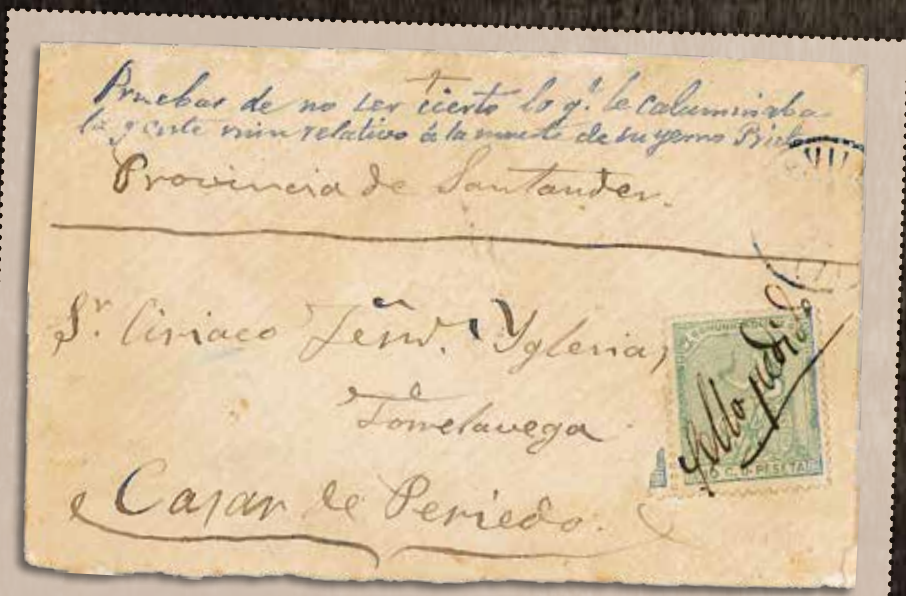 Pruebas de no ser cierto lo q.e le calumniaba
la gente ruin relativo á la muerte de su yerno
Provincia de Santander.
Sr. Ciriaco Yglesias
Torrelavega
Casar de Periedo.
COMUNICACIONES
PESETA